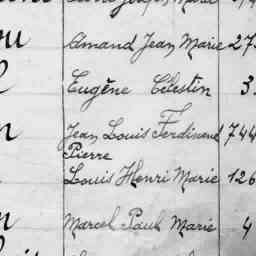 ou Amand Jean Marie 27
Eugène Célestin 3
n Jean Louis Ferdinand 744
Pierre
Louis Henri Marie 126
n Marcel Paul Marie 4